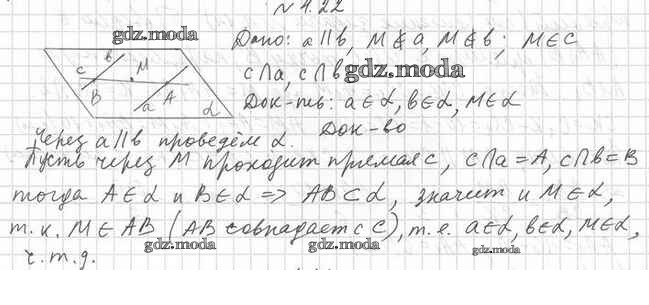 № 4.22
gdz.moda
Дано: a∥b, M∉a, M∉b; M∈c
c∩a, c∩b gdz.moda
c b M B a A α
Док-ть: a∈α, b∈α, M∈α
Док-во
Через a∥b проведём α.
Пусть через M проходит прямая c, c∩a=A, c∩b=B
тогда A∈α и B∈α => AB⊂α, значит и M∈α,
т.к. M∈AB (AB совпадает с c), т.е. a∈α, b∈α, M∈α,
gdz.moda gdz.moda gdz.moda
ч.т.д.